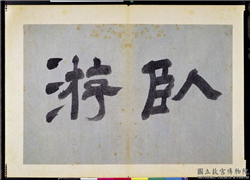 臥游
國立故宮博物院